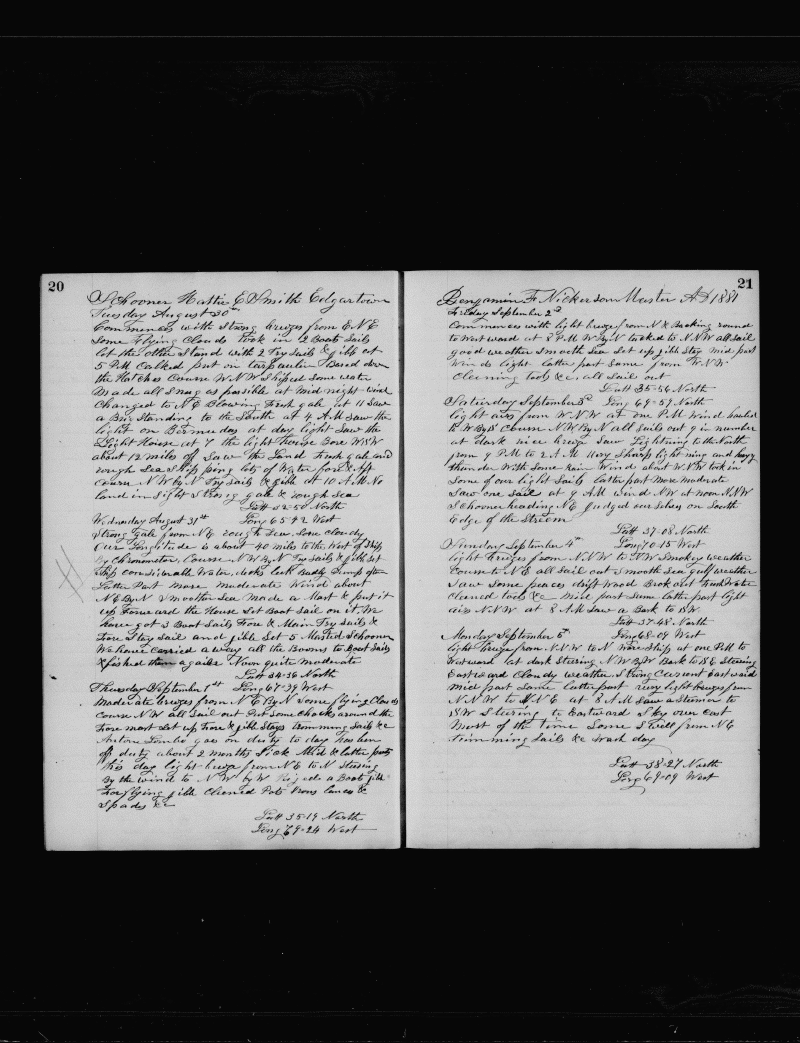 20
Schooner Hattie E Smith Edgartown
Tuesday August 30th
Commences with Strong breezes from E N E
Some Flying Clouds took in 2 Boat Sails
let the other Stand with 2 Try Sails & jibb at
5 P.M Calked put on tarpaulin Based down
the Hatches Course W N W Shiped Some water
made all Snug as possible at mid night wind
Changed to N E Blowing Fresh gale at 11 Saw
a Bri Standing to the South at 4 A.M Saw the
light on Bermudas at day light Saw the
Light House at 7 the light house Bore W S W
about 12 miles of Saw the Land Fresh gale and
rough Sea Ship ping lots of Water fore & Aft
Course N W by N Try Sails & jibb at 10 A.M No
land in Sight Strong gale & rough Sea
Latt 32-50 North
Wednesday August 31st Long 65-42 West
Strong gale from N E rough Sea Some Cloudy
Our Longitude is about 40 miles to the West of Ship
By Chronomter, Course N W By N Try Sails & jibb Set
Ship considerable Water, decks leak Badly Pump often
Latter Part more moderate Wind about
N E By N Smoother Sea made a Mast & put it
up Forward the House Set Boat Sail on it. We
have got 3 Boat Sails Fore & Main Try Sails &
Fore Stay Sail and jibb Set 5 Masted Schooner
We have carried away all the Booms to Boat Sails
& fished them againe Noon quite moderate
Latt 34-36 North
Thursday September 1st Long 67-39 West
Moderate breezes from N E By N Some flying Clouds
Course N W all Sail out Put Some Chocks around the
Fore mast Set up Fore & jibb Stays trimming Sails &c
Antone goes on duty to day has been
of duty about 2 months Sick Mid & latter parts
this day light breeze from N E to N Steering
By the wind to N W by W Riged a Boats jibb
For flying jibb Cleaned Pots Irons lances &
Spades &c
Latt 35-19 North
Long 69-24 West
21
Benjamin F. Nickerson Master AD 1881
Friday September 2d
Commences with light breeze from N & Backing round
to Westward at 8 P.M W By N tacked to N N W all Sail
good weather Smooth Sea Set up jibb Stay mid part
Winds light latter part Same from W. N W
Cleening tools &c, all Sail out
Latt 35-56 North
Saturday September 3d Long 69-59 North
light airs from W. N W at one P.M Wind hauled
to W By S Course N W By N all Sails out 9 in number
at dark nice breeze Saw Lightning to the North
from 9 P.M to 2 A.M Very Sharp light ning and heavy
thunder With Some rain Wind about W. N W took in
Some of our light Sails latter part More moderate
Saw one Sail at 9 A.M wind N W at noon N N W
Schooner heading N E judged our Selves on South
Edge of the Streem
Latt 37-08 North
Sunday September 4th Long 70-15 West
light breezes from N. N W to N W Smokey weather
Course to N E all Sail out Smooth Sea gulf weather
Saw Some peaces drift Wood Brok out Fresh Water
Cleaned tools &c Mid part Same latter part light
airs N. N W at 8 A.M Saw a Bark to S W
Latt 37-48 North
Monday September 5th Long 68-09 West
light breeze from N. N W to N wore Ship at one P.M to
Westward at dark Stering N W By W Back to S E Steering
Eastward Cloudy weather Strong Current Eastward
mid part Same latter part very light breezes from
N. N W to N N E at 8 A.M Saw a Steemer to
S W Steering to Eastward Sky over Cast
Most of the time Some Swell from N E
trimming Sails &c wash day
Latt 38-27 North
Long 69-09 West